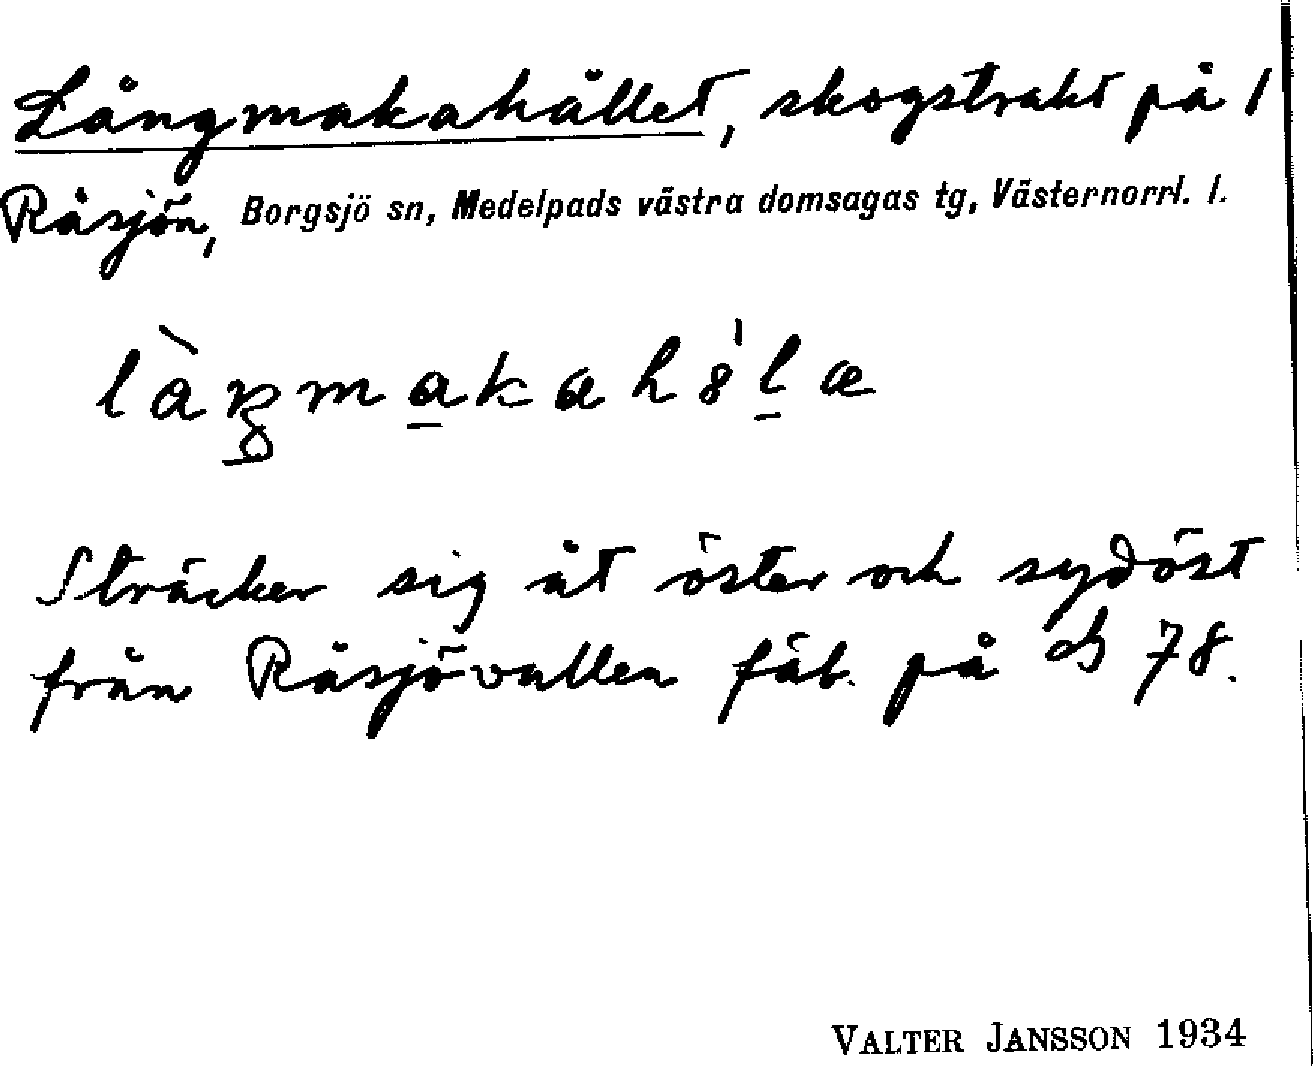 Långmakahället, skogstrakt på 1
Råsjön, Borgsjö sn, Medelpads västra domsagas tg, Västernorrl. l.
Sträcker sig åt öster och sydöst
från Råsjövallen fäb. på 78.
VALTER JANSSON 1934